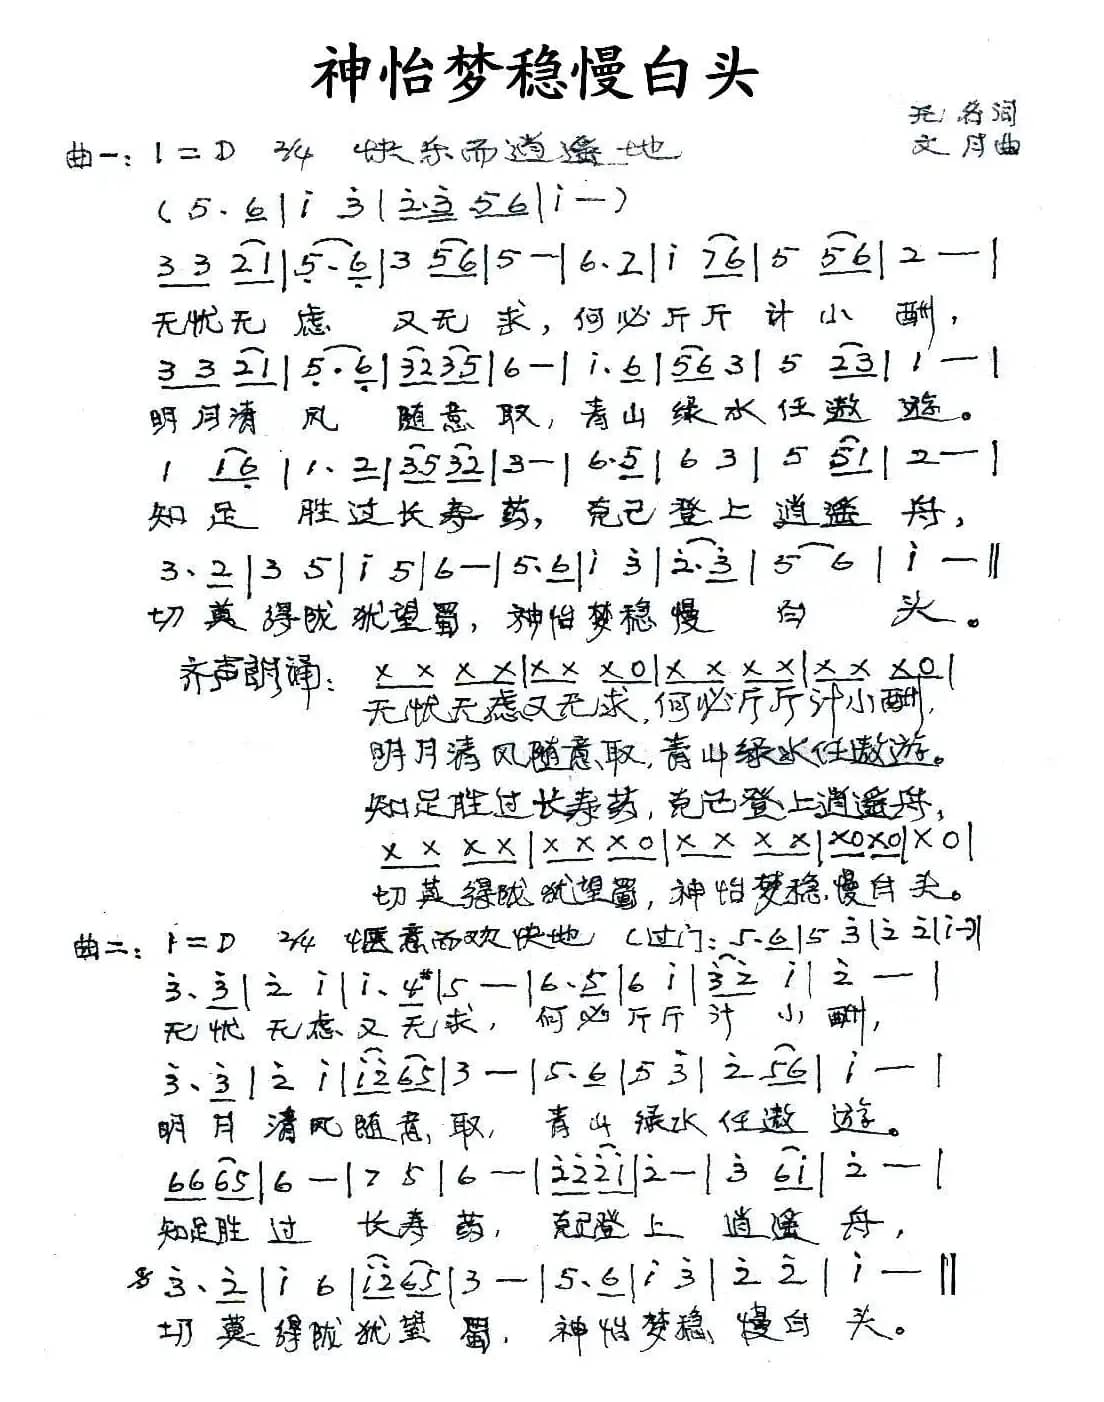 神怡梦稳慢白头
无名词
文月曲
曲一: 1=D 2/4 快乐而逍遥地
(5.6|i 3̇|2̇.3̇ 56|i—)
3 3 21|5̣.6̣|3 56|5—|6.2|i 76|5 56|2—|
无忧无虑 又无求,何必斤斤计小酬,
3 3 21|5̣.6̣|3235|6—|i.6|56 3|5 23|1—|
明月清风 随意取,青山绿水任遨游。
1 16̣|1.2|3532|3—|6.5|6 3|5 51|2—|
知足 胜过长寿药,克己登上逍遥舟,
3.2|3 5|i 5|6—|5.6|i 3̇|2̇.3̇|5 6|i—‖
切莫得陇犹望蜀,神怡梦稳慢 白 头。
齐声朗诵: X X X X|X X X 0|X X X X|X X X 0|
无忧无虑又无求,何必斤斤计小酬,
明月清风随意取,青山绿水任遨游。
知足胜过长寿药,克己登上逍遥舟,
X X X X|X X X 0|X X X X|X0X0|X 0|
切莫得陇犹望蜀,神怡梦稳慢白头。
曲二: 1=D 2/4 惬意而欢快地 (过门: 5.6|5 3̇|2̇ 2̇|i-)|
3̇.3̇|2̇ i|i.4#|5—|6.5|6 i|3̇2̇ i|2̇—|
无忧无虑又无求,何必斤斤计小酬,
3̇.3̇|2̇ i|i2̇65|3—|5.6|5 3̇|2̇ 56|i—|
明月清风随意取,青山绿水任遨游。
66 65|6—|7 5|6—|2̇2̇2̇i|2̇—|3̇ 6i|2̇—|
知足胜过 长寿药,克己登上逍遥舟,
3̇.2̇|i 6|i2̇65|3—|5.6|i 3̇|2̇ 2̇|i—‖
切莫得陇犹望蜀,神怡梦稳慢白头。